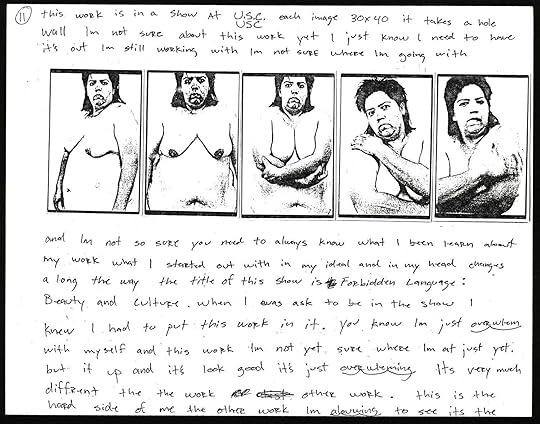 11 this work is in a show At U.S.C. each image 30x40 it takes a hole
USC
wall Im not sure about this work yet I just know I need to have
it's out Im still working with Im not sure where Im going with
and Im not so sure you need to always know what I been learn about
my work what I started out with in my ideal and in my head changes
a long the way the title of this show is Forbidden Language:
Beauty and Culture. when I was ask to be in the show I
knew I had to put this work in it. you know Im just overwhem
with myself and this work Im not yet sure where Im at just yet.
but it up and it's look good it's just overwheming Its very much
diffrent the the work other work. this is the
hard side of me the other work Im alowing to see its the